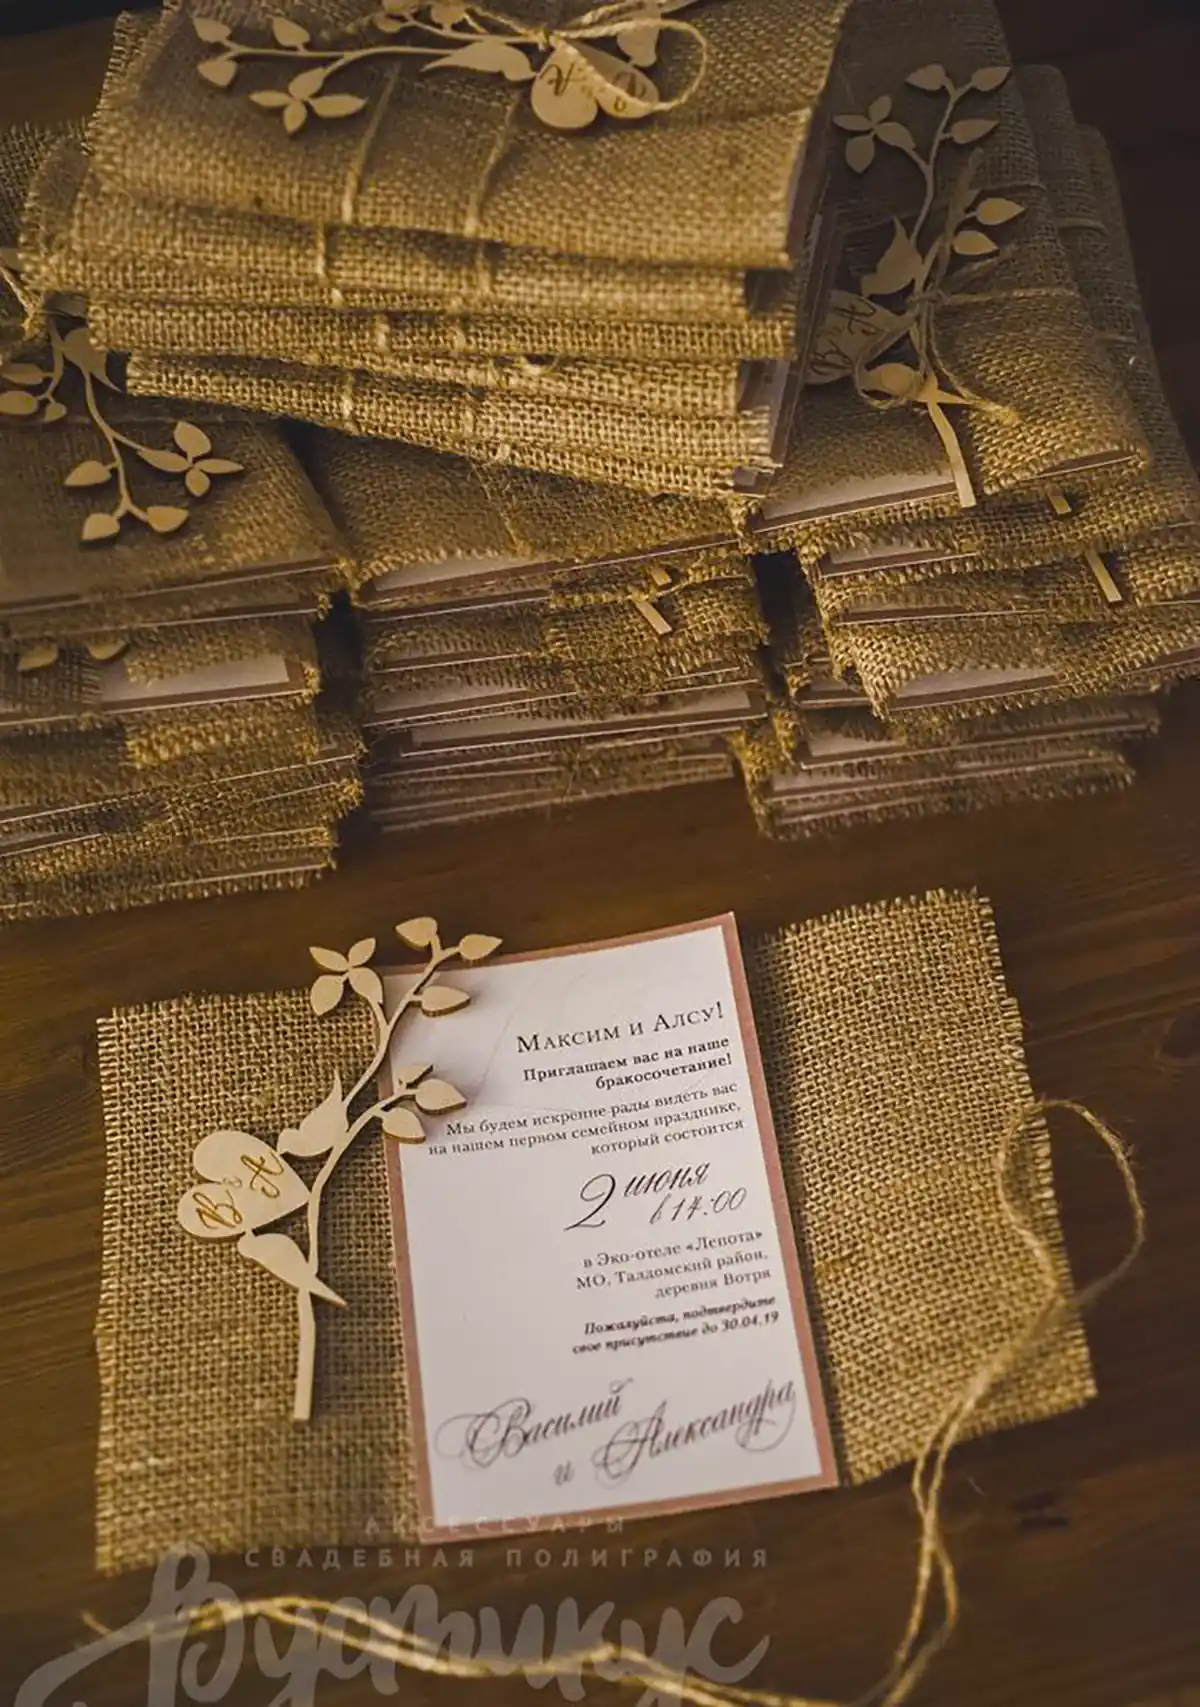 В & А
Максим и Алсу!
Приглашаем вас на наше
бракосочетание!
Мы будем искренне рады видеть вас
на нашем первом семейном празднике,
который состоится
2 июня
в 17:00
в Эко-отеле «Лепота»
МО, Талдомский район,
деревня Вотря
Пожалуйста, подтвердите
свое присутствие до 30.04.19
Василий
и Александра
АКСЕССУАРЫ
СВАДЕБНАЯ ПОЛИГРАФИЯ
Рустикус